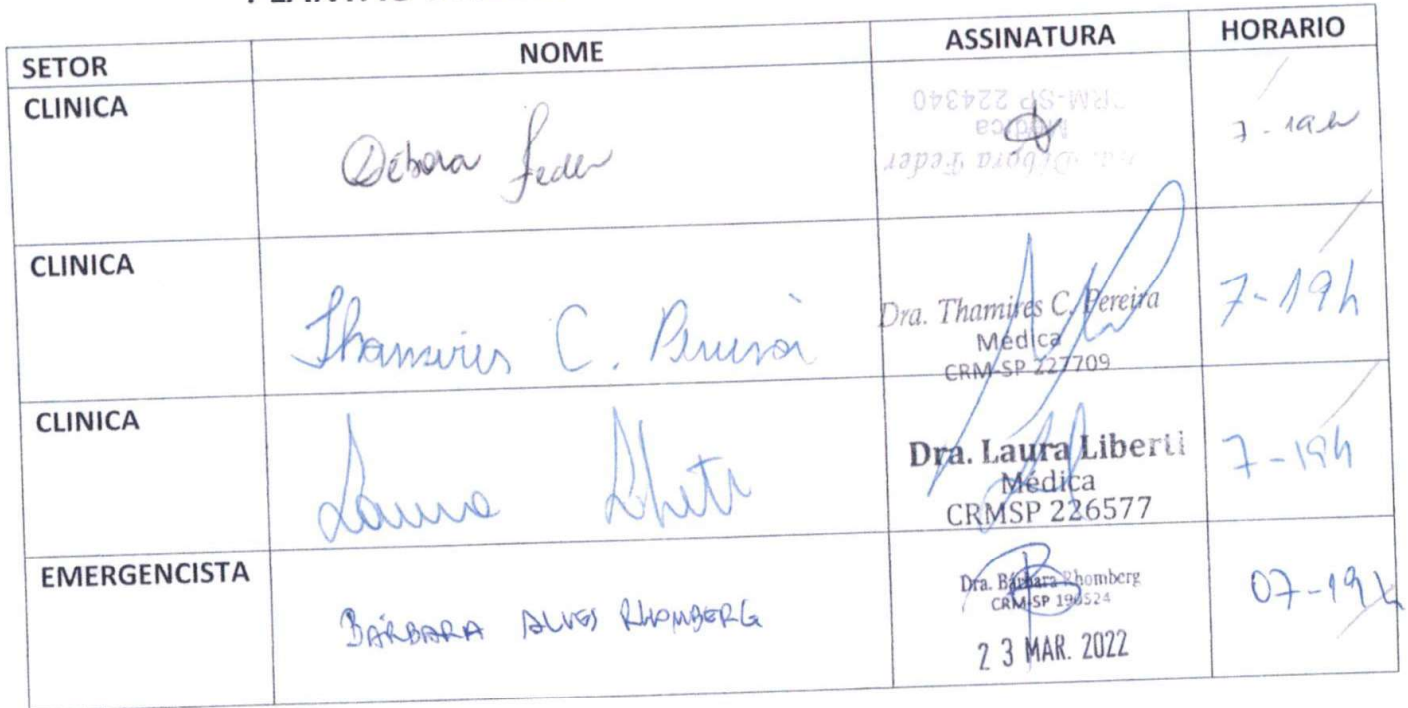 SETOR NOME ASSINATURA HORARIO
CLINICA
Débora Feder
Dra. Débora Feder
Médica
CRM-SP 224340
7-19h
CLINICA
Thamires C. Pereira
Dra. Thamires C. Pereira
Médica
CRM-SP 227709
7-19h
CLINICA
Laura Liberti
Dra. Laura Liberti
Médica
CRMSP 226577
7-19h
EMERGENCISTA
BÁRBARA ALVES RHOMBERG
Dra. Bárbara Rhomberg
CRM-SP
23 MAR. 2022
07-19h